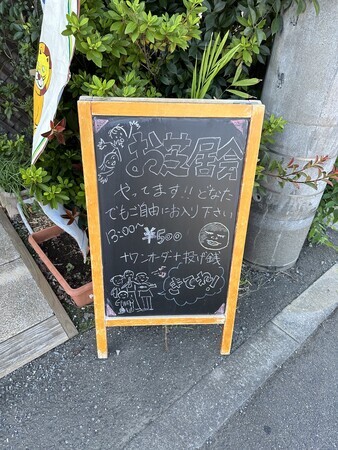 お芝居会
やってます!!どなた
でもご自由にお入り下さい
13:00〜 ¥500
+ワンオーダー+投げ銭
きてネ!